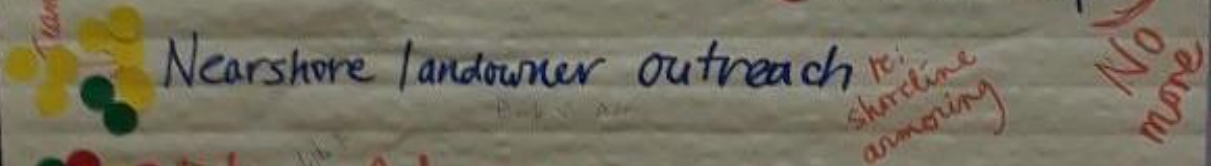 Team
Nearshore landowner outreach
re:
shoreline
armoring
No
more